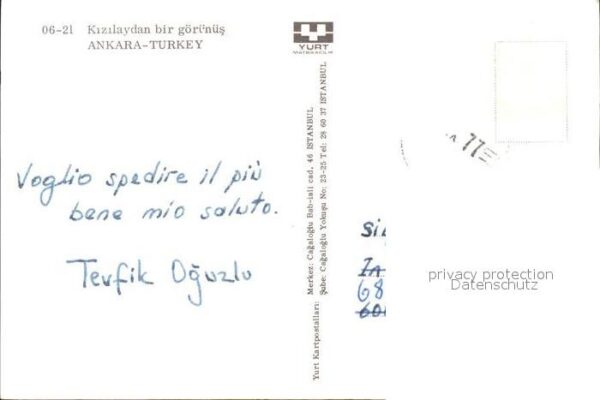 06-21 Kızılaydan bir görünüş
ANKARA-TURKEY
YURT
Voglio spedire il più
bene mio saluto.
Tevfik Oğuzlu
Yurt Kartpostalları: Merkez: Cağaloğlu Bab-ıali cad. 46 İSTANBUL
Şube: Cağaloğlu Yokuşu No: 23-25 Tel: 28 60 37 İSTANBUL
77
68
privacy protection
Datenschutz